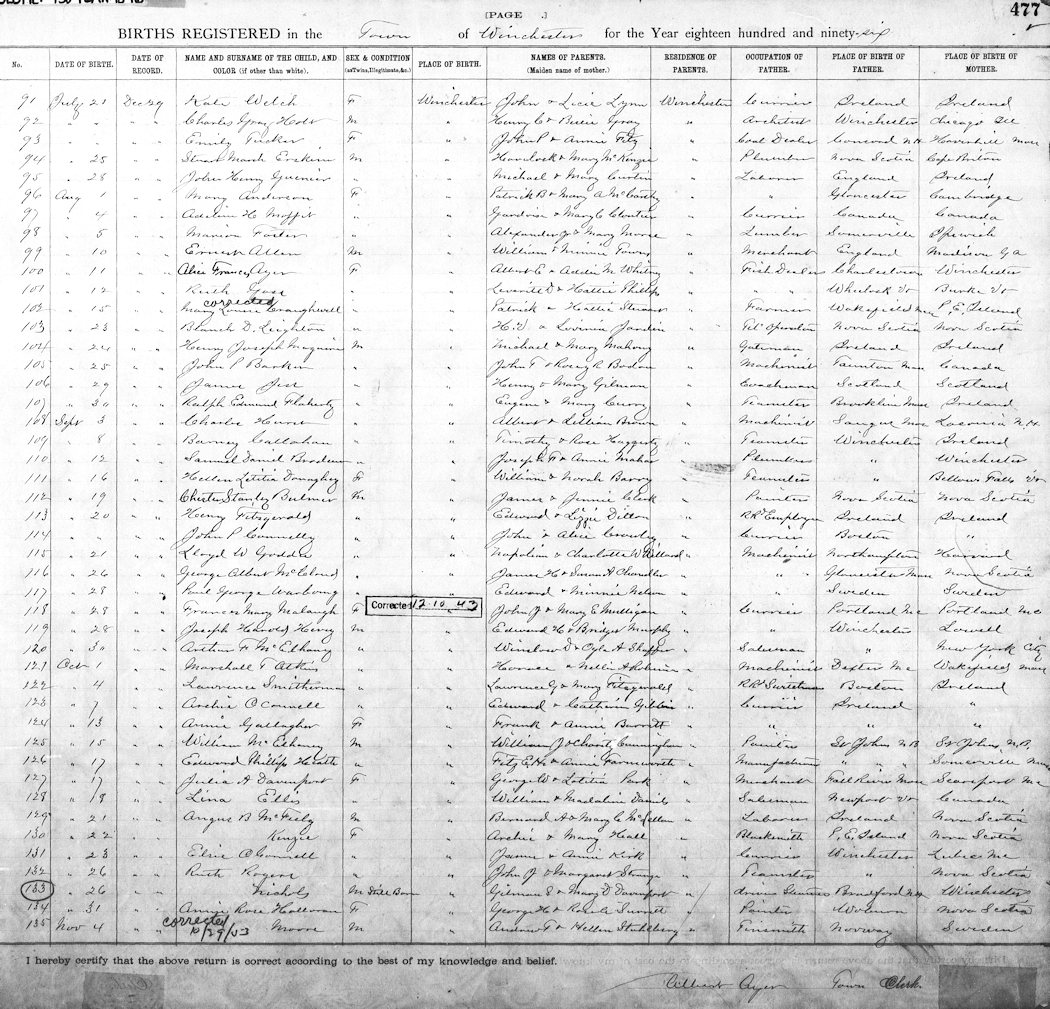 [PAGE .] 477
BIRTHS REGISTERED in the Town of Winchester for the Year eighteen hundred and ninety-six
No. DATE OF BIRTH. DATE OF RECORD. NAME AND SURNAME OF THE CHILD, AND COLOR (if other than white). SEX & CONDITION (as Twins, Illegitimate, &c.) PLACE OF BIRTH. NAMES OF PARENTS. (Maiden name of mother.) RESIDENCE OF PARENTS. OCCUPATION OF FATHER. PLACE OF BIRTH OF FATHER. PLACE OF BIRTH OF MOTHER.
91 July 21 Dec 29 Kate Welch F Winchester John & Licie Lynn Winchester Currier Ireland Ireland
92 " " " " Charles Gray Holt M " Henry C & Bessie Gray " Architect Winchester Chicago Ill
93 " " " " Emily Tucker F " John P & Annie Fitz " Coal Dealer Concord N.H. Haverhill Mass
94 " 25 " " Erskine M " Havelock & Mary McKenzie " Plumber Nova Scotia Cape Breton
95 " 28 " " John Henry " " Michael & Mary Curtin " Laborer England Ireland
96 Aug 1 " " Mary Anderson F " Patrick B & Mary A McCarthy " " Gloucester Cambridge
97 " 4 " " Adeline H Moffit " " & Mary C Cloutier " Currier Canada Canada
98 " 5 " " Marion Foster " " Alexander J & Mary Morse " Lumber Somerville Ipswich
99 " 10 " " Ernest Allen M " William & Minnie Towns " Merchant England Madison Ga
100 " 11 " " Alice Frances Ayer F " Albert E & Addie M Whitney " Fish Dealer Charlestown Winchester
101 " 12 " " Ruth Goss " " Leverett D & Hattie Phillips " " " Wheelock Vt Burke Vt
corrected
102 " 15 " " Mary Louise Craughwell " " Patrick & Hattie Stewart " Farmer Wakefield Mass P. E. Island
103 " 23 " " Blanch D. Leighton " " H.D & Lovinia Jardin " Tel Operator Nova Scotia Nova Scotia
104 " 24 " " Henry Joseph Maguire M " Michael & Mary Mahony " Gateman Ireland Ireland
105 " 25 " " John P Barker " " John T & Rosey R Boston " Machinist Taunton Mass Canada
106 " 29 " " James " " Henry & Mary Gilman " Coachman Scotland Scotland
107 " 30 " " Ralph Edmund Flaherty " " Eugene & Mary Curry " Teamster Brooklin Mass Ireland
108 Sept 3 " " Charles Hurst " " Albert & Lillian Brown " Machinist Saugus Mass Laconia N.H.
109 " 8 " " Barney Callahan " " Timothy & Rose Haggerty " Teamster Winchester Ireland
110 " 12 " " Samuel Daniel " " Joseph F & Annie Maher " Plumber " Winchester
111 " 16 " " Hellen Letitia Donaghey F " William & Norah Barry " Teamster " Bellows Falls Vt
112 " 19 " " Chester Stanley Bulmer M " James & Jennie Clark " Painter Nova Scotia Nova Scotia
113 " 20 " " Henry Fitzgerald " " Edward & Lizzie Dillon " RR Employee Ireland Ireland
114 " " " " John P Connelly " " John & Alice Crowley " Currier Boston "
115 " 21 " " Lloyd W Goddu " " Napolion & Charlotte W Willard " Machinist Northampton Harvard
116 " 26 " " George Albert McCloud " " James H & Susan A Chandler " " " Gloucester Mass Nova Scotia
117 " 28 " " Paul George " " Edward & Minnie Nelson " " Sweden Sweden
118 " 28 " " Frances Mary F Corrected 12-10-43 John J & Mary E Mulligan " Currier Portland Me Portland Me
119 " 28 " " Joseph Harold M " Edward H & Bridget Murphy " " Winchester Lowell
120 " 30 " " Arthur F McElhaney " " Winslow D & " Salesman " New York City
121 Oct 1 " " Marshall T Atkins " " Horace & Nellie A " Machinist Dexter Me Wakefield Mass
122 " 4 " " Lawrence Smitherman " " Lawrence G & Mary Fitzgerald " RR Switchman Boston Ireland
123 " 7 " " Archie O'Connell " " Edward & " Currier Ireland "
124 " 13 " " Annie Gallagher F " Frank & Annie Barrett " " " "
125 " 15 " " William McElhaney M " William J & Charity Cunningham " Painter St Johns N.B St Johns N.B.
126 " 17 " " Edward Phillips Heath " " Fitz E.H. & Annie Farnsworth " Manufacturer " " Somerville Mass
127 " 17 " " Julia A Davenport F " George W & Letitia Park " Merchant Fall River Mass Searsport Me
128 " 18 " " Lina Ellis " " William & Madaline Daniels " Salesman Newport Vt Canada
129 " 21 " " Angus B McFeely M " Bernard A & Mary C McLellan " Laborer Ireland Nova Scotia
130 " 22 " " Kenzie F " Archie & Mary Hall " Blacksmith P. E. Island Nova Scotia
131 " 23 " " Elsie O'Connell " " James & Annie Kirk " Currier Winchester Lubec Me
132 " 26 " " Ruth Rogers " " John J & Margaret Strange " Teamster " Nova Scotia
133 " 26 " " Nichols M Still Born " Gilman S & Mary D Davenport " Bradford N.H. Winchester
134 " 31 " " Annie Rose Halloran F " George H & " Painter Woburn Nova Scotia
135 Nov 4 " " corrected 10/29/53 Moore M " Andrew T & Hellen " Tinsmith Norway Sweden
I hereby certify that the above return is correct according to the best of my knowledge and belief.
Ayer Town Clerk.